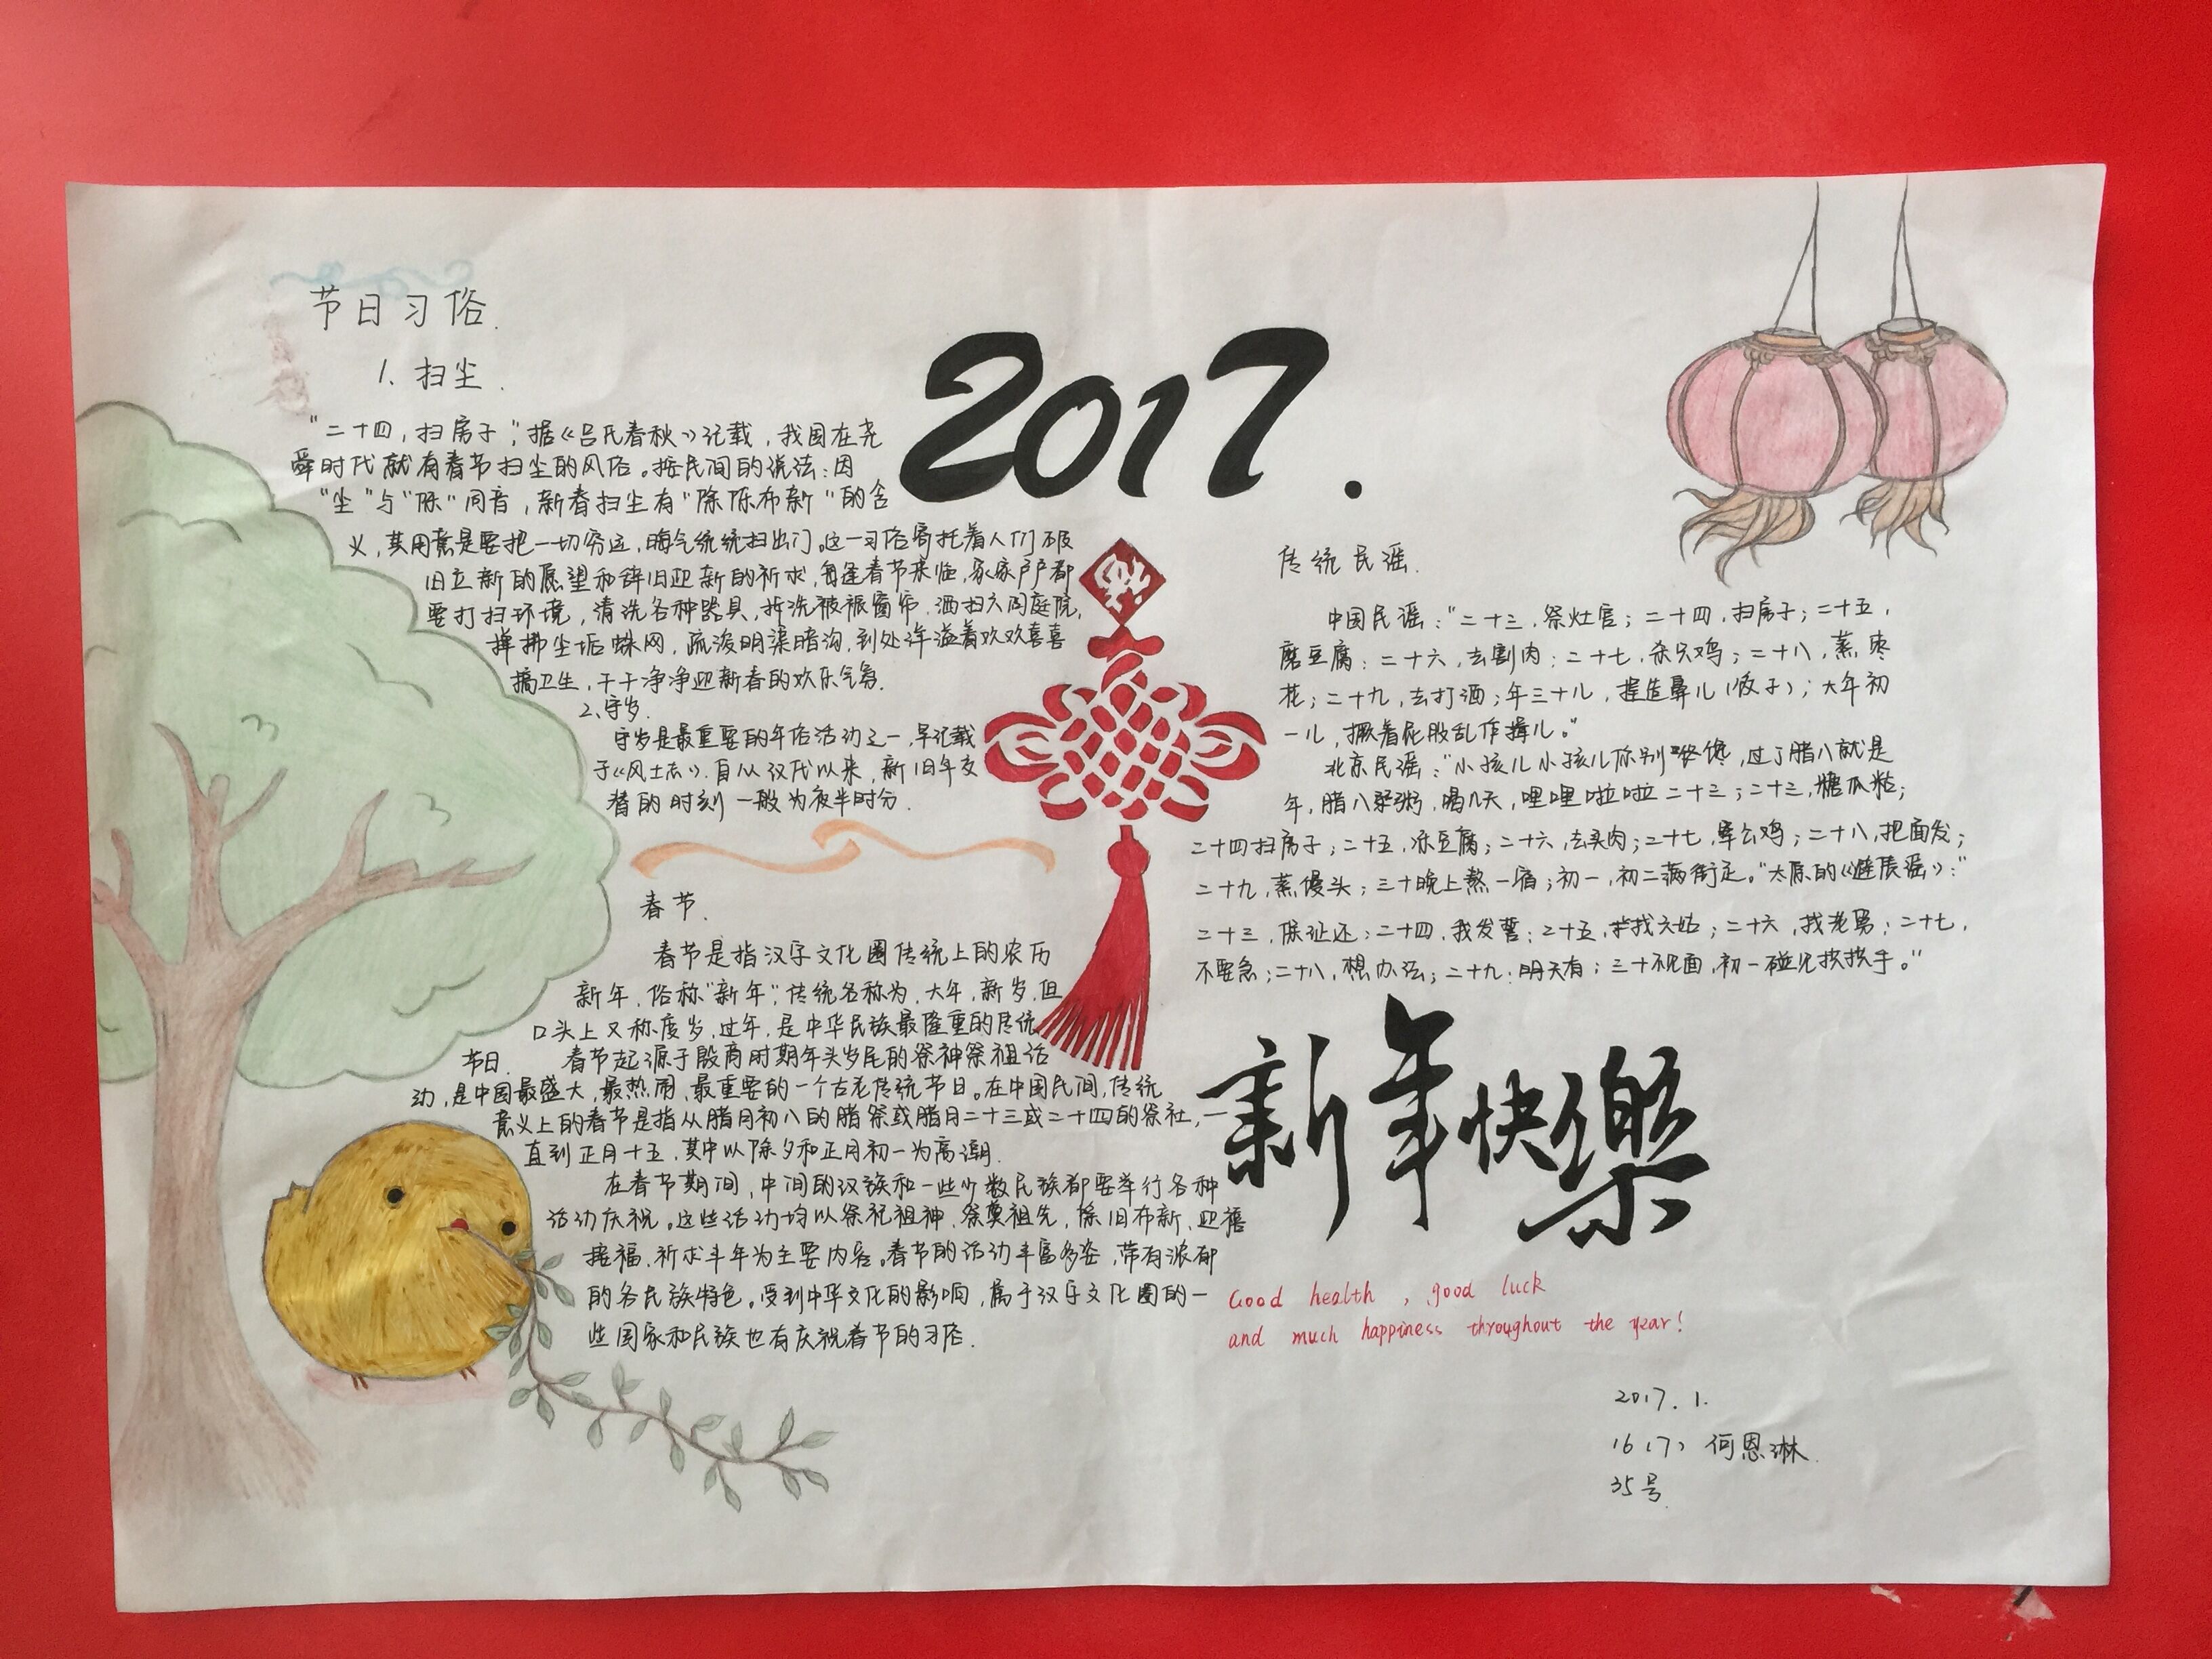 节日习俗.
1、扫尘.
"二十四,扫房子",据《吕氏春秋》记载,我国在尧
舜时代就有春节扫尘的风俗。按民间的说法:因
"尘"与"陈"同音,新春扫尘有"除陈布新"的含
义,其用意是要把一切穷运,晦气统统扫出门。这一习俗寄托着人们破
旧立新的愿望和辞旧迎新的祈求,每逢春节来临,家家户户都
要打扫环境,清洗各种器具,拆洗被褥窗帘,洒扫六闾庭院,
掸拂尘垢蛛网,疏浚明渠暗沟,到处洋溢着欢欢喜喜
搞卫生,干干净净迎新春的欢乐气氛.
2、守岁.
守岁是最重要的年俗活动之一,早记载
于《风土志》.自从汉代以来,新旧年交
替的时刻一般为夜半时分.
春节.
春节是指汉字文化圈传统上的农历
新年,俗称"新年",传统名称为,大年,新岁,但
口头上又称度岁,过年,是中华民族最隆重的传统
节日. 春节起源于殷商时期年头岁尾的祭神祭祖活
动,是中国最盛大,最热闹,最重要的一个古老传统节日。在中国民间,传统
意义上的春节是指从腊月初八的腊祭或腊月二十三或二十四的祭社,一
直到正月十五,其中以除夕和正月初一为高潮.
在春节期间,中间的汉族和一些少数民族都要举行各种
活动庆祝。这些活动均以祭祀祖神,祭奠祖先,除旧布新,迎禧
接福,祈求丰年为主要内容。春节的活动丰富多姿,带有浓郁
的各民族特色。受到中华文化的影响,属于汉字文化圈的一
些国家和民族也有庆祝春节的习俗.
2017.
福
传统民谣.
中国民谣:"二十三,祭灶官;二十四,扫房子;二十五,
磨豆腐;二十六,去割肉;二十七,杀只鸡;二十八,蒸枣
花;二十九,去打酒;年三十儿,捏造鼻儿(饺子);大年初
一儿,撅着屁股乱作揖儿。"
北京民谣:"小孩儿小孩儿你别馋,过了腊八就是
年,腊八粥,喝几天,哩哩啦啦二十三;二十三,糖瓜粘;
二十四扫房子;二十五,冻豆腐;二十六,去买肉;二十七,宰公鸡;二十八,把面发;
二十九,蒸馒头;三十晚上熬一宿;初一,初二满街走。"太原的《避债谣》:"
二十三,除还;二十四,我发誓;二十五,找六姑;二十六,找老舅;二十七,
不要急;二十八,想办法;二十九:明天有;三十不见面,初一碰见拱拱手。"
新年快樂
Good health , good luck
and much happiness throughout the year!
2017. 1.
16(7) 何恩琳.
35号.